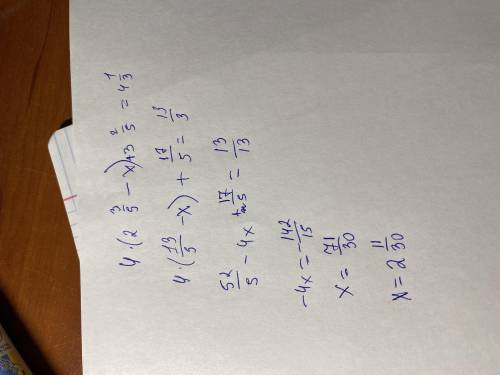 4 · (2 3/5 − x) + 3 2/5 = 4 1/3
4 · (13/5 − x) + 17/5 = 13/3
52/5 − 4x + 17/5 = 13/13
−4x = −142/15
x = 71/30
x = 2 11/30